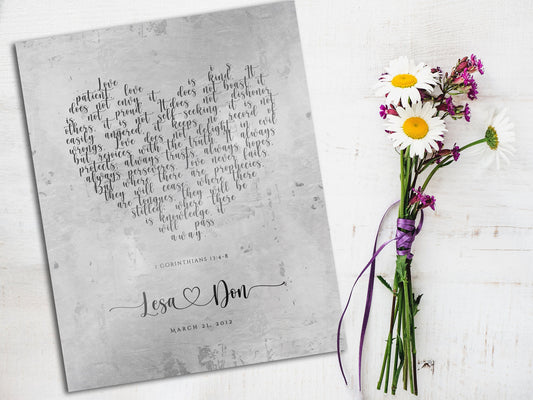 Love is kind. It
patient, love is
does not envy, it does not boast, it
is not proud. It does not dishonor
others, it is not self seeking, it is not
easily angered, it keeps no record of
wrongs. Love does not delight in evil
but rejoices with the truth. It always
protects, always trusts, always hopes,
always perseveres. Love never fails.
But where there are prophecies,
they will cease; where there
are tongues, they will be
stilled; where there
is knowledge, it
will pass
away.
1 CORINTHIANS 13:4-8
Lesa Don
MARCH 21, 2012